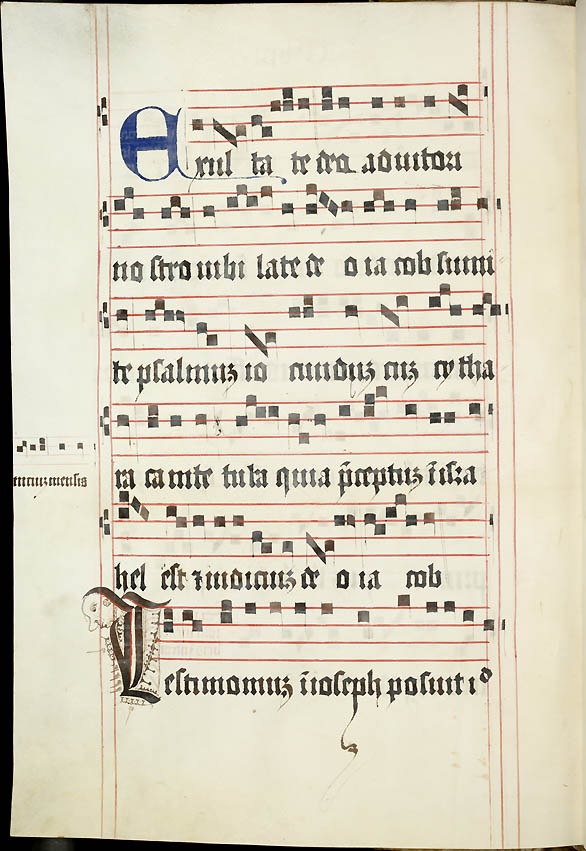 Exul ta te deo adiutori
no stro iubi late de o ia cob sumi
te psalmuz io cunduz cuz cy tha
ra ca nite tuba quia p̄ceptuz ī isra
mensis
hel est ⁊ iudiciuz de o ia cob
Testimoniuz ī ioseph posuit id